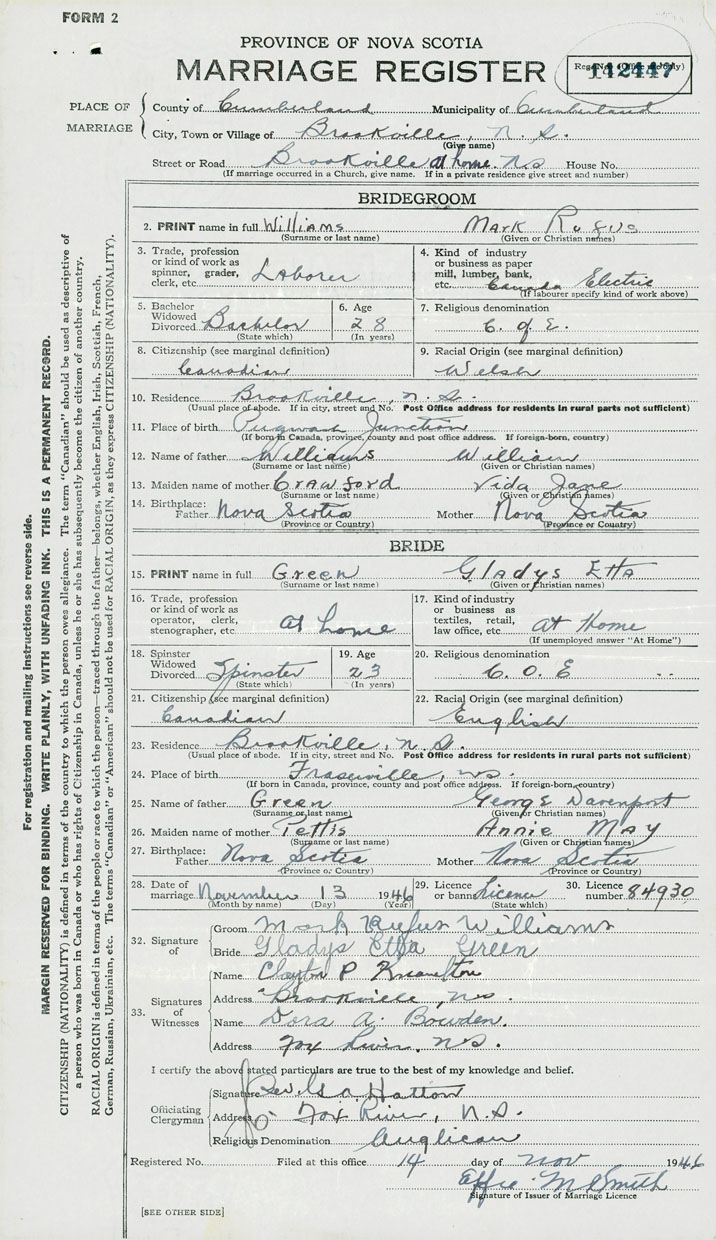 FORM 2
PROVINCE OF NOVA SCOTIA
MARRIAGE REGISTER
142447
PLACE OF MARRIAGE
County of Cumberland Municipality of Cumberland
City, Town or Village of Brookville, N. S.
(Give name)
Street or Road Brookville at home. NS House No.
(If marriage occurred in a Church, give name. If in a private residence give street and number)
BRIDEGROOM
2. PRINT name in full Williams Mark Rufus
(Surname or last name) (Given or Christian names)
3. Trade, profession or kind of work as spinner, grader, clerk, etc. Laborer
4. Kind of industry or business as paper mill, lumber, bank, etc. Canada Electric
(If labourer specify kind of work above)
5. Bachelor Widowed Divorced Bachelor
(State which)
6. Age 28
(In years)
7. Religious denomination C. of E.
8. Citizenship (see marginal definition) Canadian
9. Racial Origin (see marginal definition) Welsh
10. Residence Brookville, N. S.
(Usual place of abode. If in city, street and No. Post Office address for residents in rural parts not sufficient)
11. Place of birth Pugwash Junction
(If born in Canada, province, county and post office address. If foreign-born, country)
12. Name of father Williams William
(Surname or last name) (Given or Christian names)
13. Maiden name of mother Crawford Vida Jane
(Surname or last name) (Given or Christian names)
14. Birthplace: Father Nova Scotia Mother Nova Scotia
(Province or Country) (Province or Country)
BRIDE
15. PRINT name in full Green Gladys Etta
(Surname or last name) (Given or Christian names)
16. Trade, profession or kind of work as operator, clerk, stenographer, etc. at home
17. Kind of industry or business as textiles, retail, law office, etc. At Home
(If unemployed answer "At Home")
18. Spinster Widowed Divorced Spinster
(State which)
19. Age 23
(In years)
20. Religious denomination C. O. E
21. Citizenship (see marginal definition) Canadian
22. Racial Origin (see marginal definition) English
23. Residence Brookville, N.S.
(Usual place of abode. If in city, street and No. Post Office address for residents in rural parts not sufficient)
24. Place of birth Fraserville, NS.
(If born in Canada, province, county and post office address. If foreign-born, country)
25. Name of father Green George Davenport
(Surname or last name) (Given or Christian names)
26. Maiden name of mother Pettis Annie May
(Surname or last name) (Given or Christian names)
27. Birthplace: Father Nova Scotia Mother Nova Scotia
(Province or Country) (Province or Country)
28. Date of marriage November 13 1946
(Month by name) (Day) (Year)
29. Licence or banns Licence
(State which)
30. Licence number 84930
32. Signature of
Groom Mark Rufus Williams
Bride Gladys Etta Green
33. Signatures of Witnesses
Name Clayton P
Address Brookville, NS.
Name Dora A. Bowden.
Address Fox River, N.S.
I certify the above stated particulars are true to the best of my knowledge and belief.
Officiating Clergyman
Signature Rev. Hatton
Address Fox River, N.S.
Religious Denomination Anglican
Registered No. Filed at this office 14 day of Nov 1946
Effie M Smith
Signature of Issuer of Marriage Licence
[SEE OTHER SIDE]
For registration and mailing instructions see reverse side.
MARGIN RESERVED FOR BINDING. WRITE PLAINLY, WITH UNFADING INK. THIS IS A PERMANENT RECORD.
CITIZENSHIP (NATIONALITY) is defined in terms of the country to which the person owes allegiance. The term "Canadian" should be used as descriptive of
a person who was born in Canada or who has rights of Citizenship in Canada, unless he or she has subsequently become the citizen of another country.
RACIAL ORIGIN is defined in terms of the people or race to which the person—traced through the father—belongs, whether English, Irish, Scottish, French,
German, Russian, Ukrainian, etc. The terms "Canadian" or "American" should not be used for RACIAL ORIGIN, as they express CITIZENSHIP (NATIONALITY).